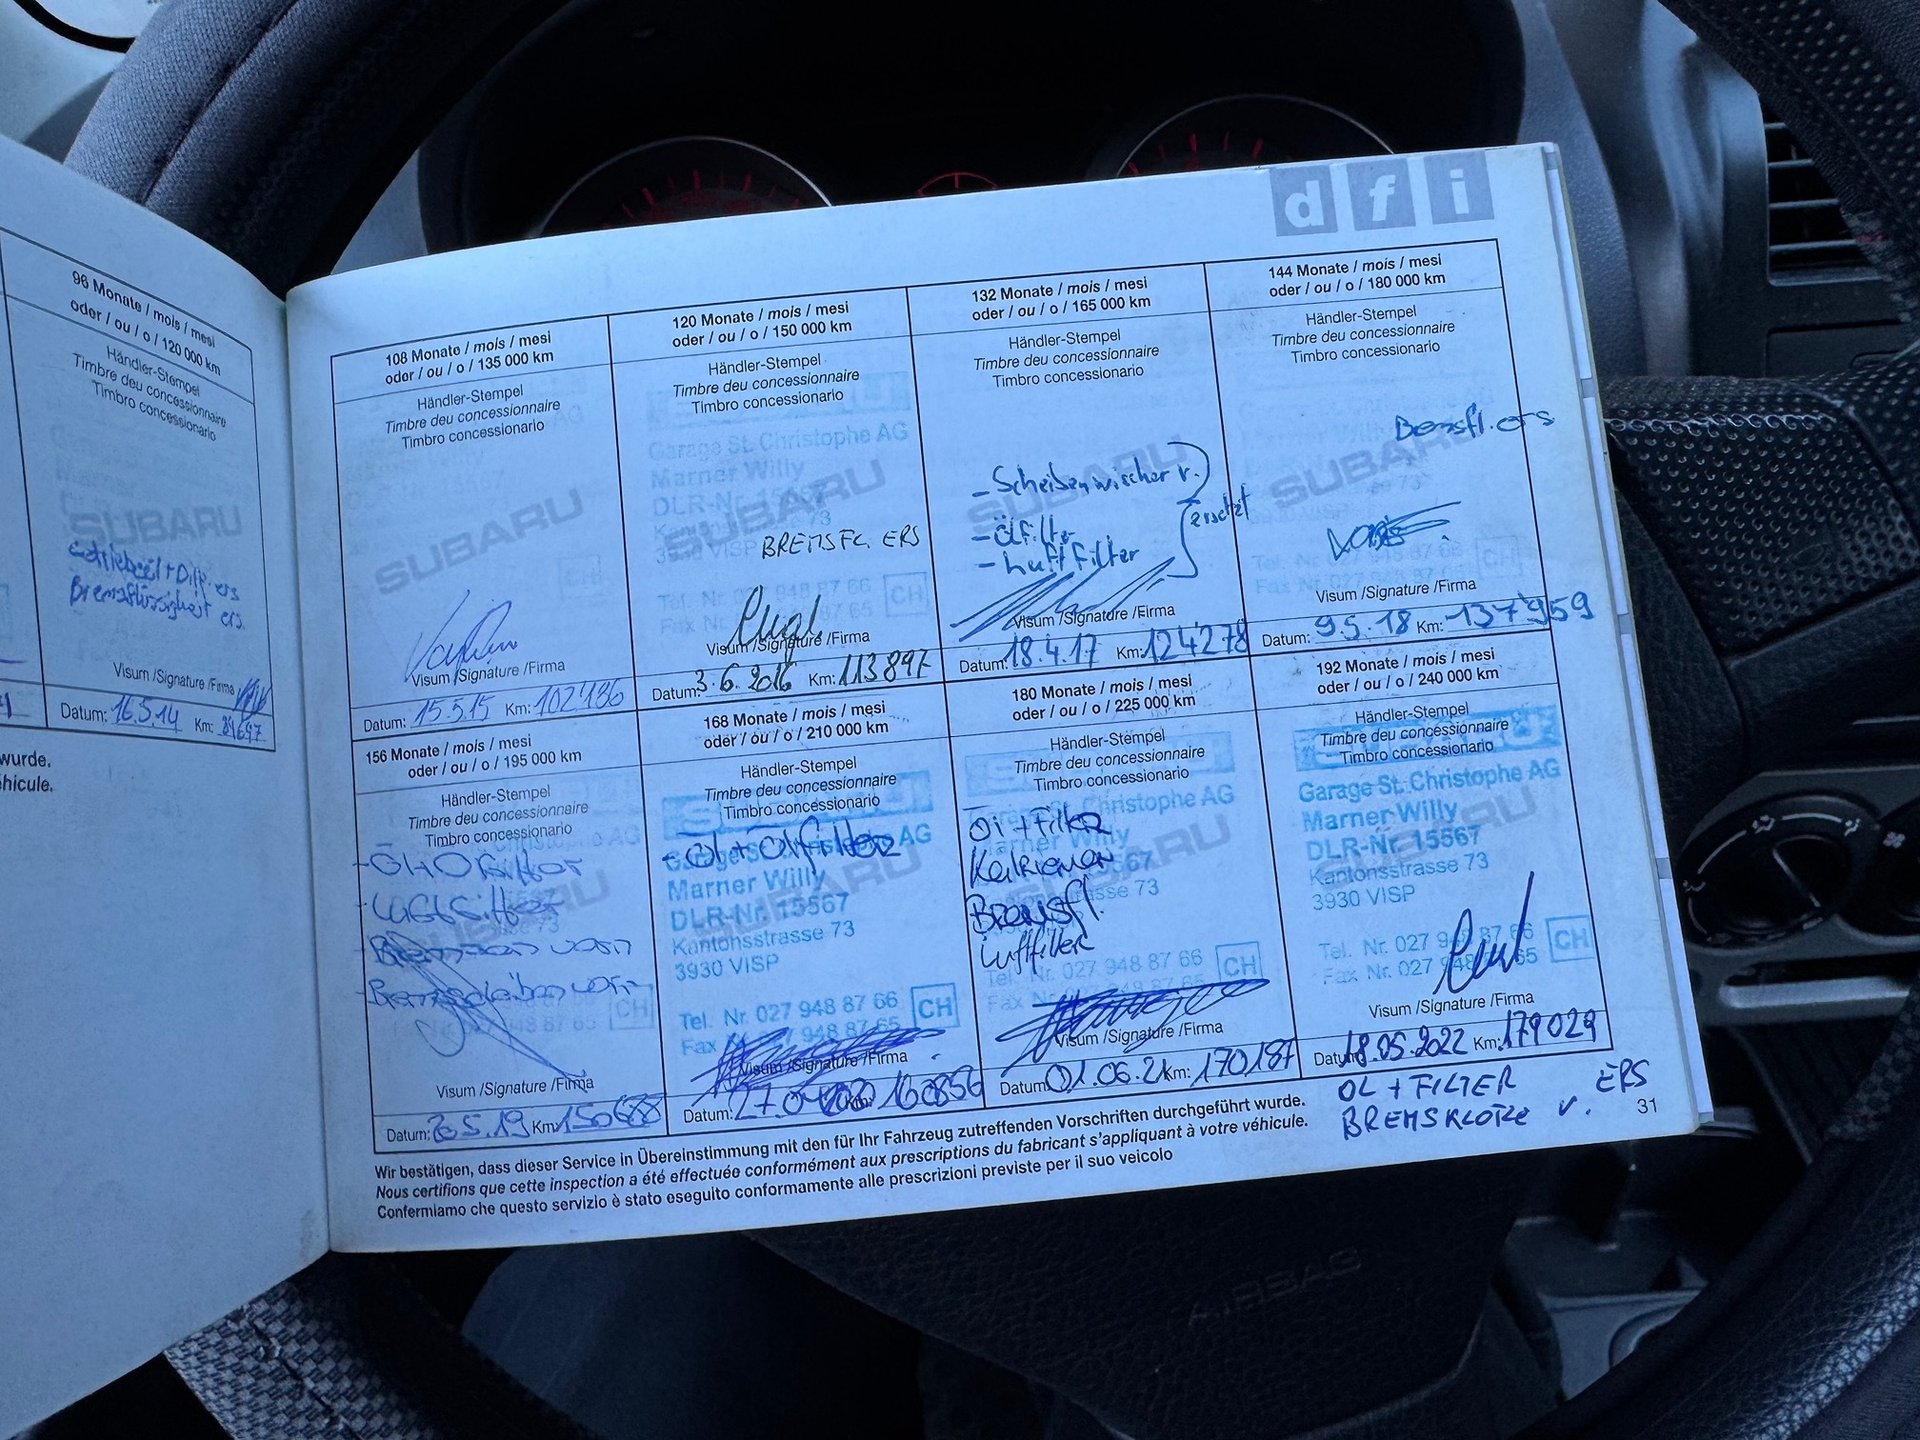 96 Monate / mois / mesi
oder / ou / o / 120 000 km
Händler-Stempel
Timbre deu concessionnaire
Timbro concessionario
SUBARU
Getriebeöl + Diff. ers
Bremsflüssigkeit ers.
Visum /Signature /Firma
Datum: 16.5.14 Km: 91697
wurde.
hicule.
dfi
108 Monate / mois / mesi
oder / ou / o / 135 000 km
Händler-Stempel
Timbre deu concessionnaire
Timbro concessionario
SUBARU
Visum /Signature /Firma
Datum: 15.5.15 Km: 102'136
120 Monate / mois / mesi
oder / ou / o / 150 000 km
Händler-Stempel
Timbre deu concessionnaire
Timbro concessionario
Garage St. Christophe AG
Marner Willy
DLR-Nr. 15567
SUBARU
Kantonsstrasse 73
3930 VISP
BREMSFL. ERS
Tel. Nr. 027 948 87 66
Fax Nr. 027 948 87 65
CH
Visum /Signature /Firma
Datum: 3.6.2016 Km: 113897
132 Monate / mois / mesi
oder / ou / o / 165 000 km
Händler-Stempel
Timbre deu concessionnaire
Timbro concessionario
SUBARU
- Scheibenwischer v.
- Ölfilter
- Luftfilter
ersetzt
Visum /Signature /Firma
Datum: 18.4.17 Km: 124'278
144 Monate / mois / mesi
oder / ou / o / 180 000 km
Händler-Stempel
Timbre deu concessionnaire
Timbro concessionario
Bremsfl. ers
SUBARU
Visum /Signature /Firma
Datum: 9.5.18 Km: 137'959
156 Monate / mois / mesi
oder / ou / o / 195 000 km
Händler-Stempel
Timbre deu concessionnaire
Timbro concessionario
- Öl+Ölfilter
- Luftfilter
- Bremsen vorn
- Bremsscheiben vorn
CH
Visum /Signature /Firma
Datum: 5.19 Km:
168 Monate / mois / mesi
oder / ou / o / 210 000 km
Händler-Stempel
Timbre deu concessionnaire
Timbro concessionario
- Öl + Ölfilter
Garage St. Christophe AG
Marner Willy
DLR-Nr. 15567
Kantonsstrasse 73
3930 VISP
Tel. Nr. 027 948 87 66
Fax Nr. 027 948 87 65
CH
Visum /Signature /Firma
Datum: Km: 160856
180 Monate / mois / mesi
oder / ou / o / 225 000 km
Händler-Stempel
Timbre deu concessionnaire
Timbro concessionario
Öl + Filter
Keilriemen
Bremsfl.
Luftfilter
SUBARU
Tel. Nr. 027 948 87 66
CH
Visum /Signature /Firma
Datum: 01.06.21 Km: 170187
192 Monate / mois / mesi
oder / ou / o / 240 000 km
Händler-Stempel
Timbre deu concessionnaire
Timbro concessionario
Garage St. Christophe AG
Marner Willy
DLR-Nr. 15567
Kantonsstrasse 73
3930 VISP
SUBARU
Tel. Nr. 027 948 87 66
Fax Nr. 027 948 87 65
CH
Visum /Signature /Firma
Datum: 18.05.2022 Km: 179029
ÖL + FILTER ERS
BREMSKLÖTZE v.
31
Wir bestätigen, dass dieser Service in Übereinstimmung mit den für Ihr Fahrzeug zutreffenden Vorschriften durchgeführt wurde.
Nous certifions que cette inspection a été effectuée conformément aux prescriptions du fabricant s'appliquant à votre véhicule.
Confermiamo che questo servizio è stato eseguito conformamente alle prescrizioni previste per il suo veicolo
AIRBAG